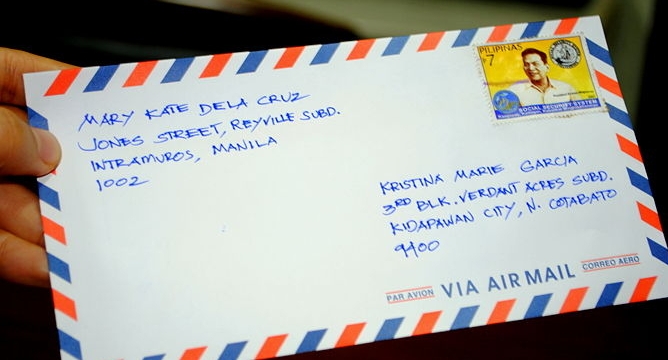 MARY KATE DELA CRUZ
JONES STREET, REYVILLE SUBD.
INTRAMUROS, MANILA
1002
PILIPINAS
7
SOCIAL SECURITY SYSTEM
KRISTINA MARIE GARCIA
3RD BLK. VERDANT ACRES SUBD.
KIDAPAWAN CITY, N. COTABATO
9400
PAR AVION VIA AIR MAIL CORREO AEREO